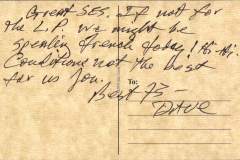 Great SES. If not for
the L.P. we might be
speakin French today! Hi-Hi.
Conditions not the best
for us Jon.
To:
Best 73 -
Dave